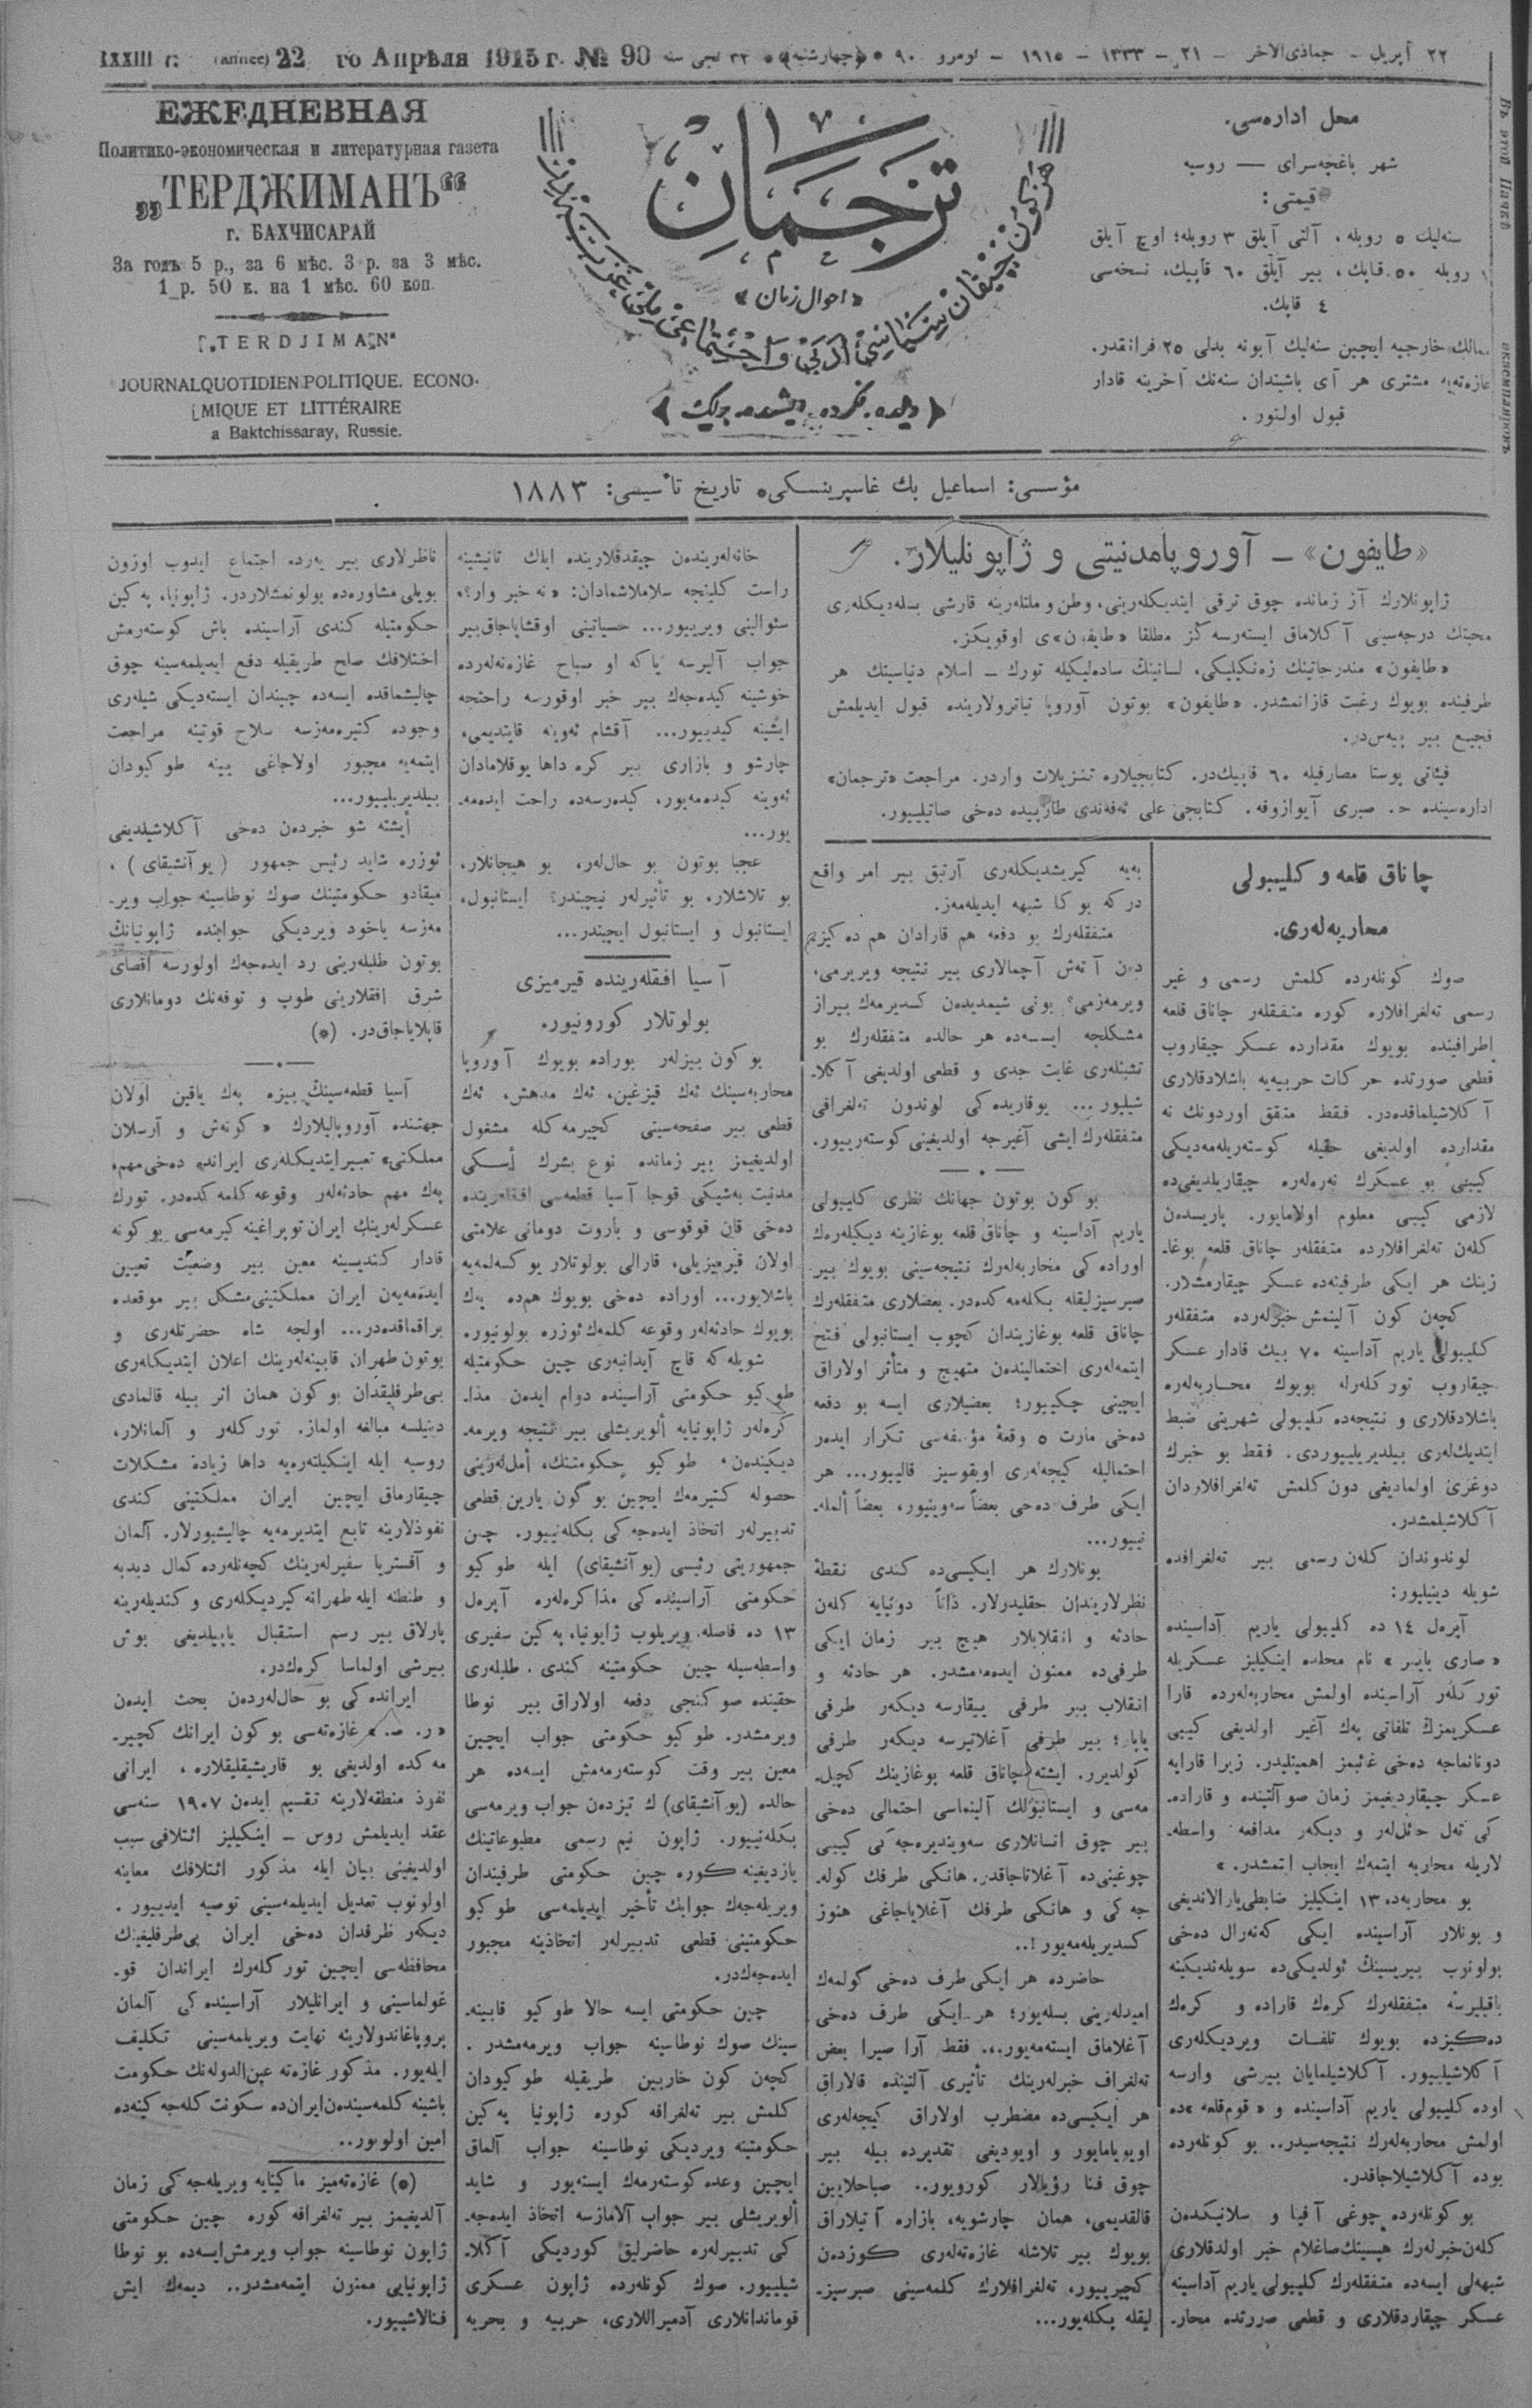 ٢٢ آپریل - جماذی‌الاخر - ٢١ - ١٣٣٣ - ١٩١٥ - نومرو ٩٠ (چهارشنبه) ٣٣ نجی سنه
22 го Апрѣля 1915 г. № 90
(annee)
XXXIII г.
محل اداره‌سی.
شهر باغچه‌سرای — روسیه
قیمتی:
سنه‌لیك ٥ روبله، آلتی آیلق ٣ روبله؛ اوچ آیلق
١ روبله ٥٠ قاپك، بیر آیلق ٦٠ قاپیك، نسخه‌سی
٤ قاپك.
ممالك خارجیه ایچین سنه‌لیك آبونه بدلی ٢٥ فرانقدر.
غازه‌ته‌یه مشتری هر آی باشیندان سنه‌نك آخرینه قادار
قبول اولنور.
ترجمان
«احوال زمان»
هر كون چیقان سیاسی، ادبی و اجتماعی ملی غزته‌در
﴿ دلده، فكرده، ایشده برلك ﴾
ЕЖЕДНЕВНАЯ
Политико-экономическая и литературная газета
„ТЕРДЖИМАНЪ“
г. БАХЧИСАРАЙ
За годъ 5 р., за 6 мѣс. 3 р. за 3 мѣс.
1 р. 50 к. на 1 мѣс. 60 коп.
„TERDJIMAN“
JOURNAL QUOTIDIEN POLITIQUE. ECONO-
MIQUE ET LITTÉRAIRE
a Baktchissaray, Russie.
مؤسسی: اسماعیل بك غاسپرینسكی، تاریخ تأسیسی: ١٨٨٣
«طایفون» – آوروپا مدنیتی و ژاپونلیلار.
ژاپونلارك آز زمانده چوق ترقی ایتدیكله‌رینی، وطن و ملتله‌رینه قارشی بسله‌دیكله‌ری
محبتك درجه‌سینی آكلاماق ایسته‌رسه‌كز مطلقا «طایفون»ی اوقویكز.
«طایفون» مندرجاتینك زه‌نكیلیكی، لسانینك ساده‌لیكیله تورك – اسلام دنیاسینك هر
طرفینده بویوك رغبت قازانمشدر. «طایفون» بوتون آوروپا تیاترولارینده قبول ایدیلمش
فجیع بیر پیه‌س‌در.
فیئاتی پوستا مصارفیله ٦٠ قاپیك‌در. كتابجیلاره تنزیلات واردر. مراجعت «ترجمان»
اداره‌سینده ح. صبری آیوازوفه. كتابجی علی ئه‌فه‌ندی طارپیده ده‌خی صاتیلییور.
چاناق قلعه و كلیبولی
محاربه‌له‌ری.
صوك كونله‌رده كلمش رسمی و غیر
رسمی ته‌لغرافلاره كوره متفقله‌ر چاناق قلعه
اطرافینده بویوك مقدارده عسكر چیقاروب
قطعی صورتده حركات حربییه‌یه باشلادقلاری
آكلاشیلماقده‌در. فقط متفق اوردونك نه
مقدارده اولدیغی حقیله كوسته‌ریله‌مه‌دیكی
كیبی بو عسكرك نه‌ره‌له‌ره چیقاریلدیغی‌ده
لازمی كیبی معلوم اولامایور. پاریسده‌ن
كله‌ن ته‌لغرافلارده متفقله‌ر چاناق قلعه بوغا-
زینك هر ایكی طرفینه‌ده عسكر چیقارمشلار.
كچه‌ن كون آلینمش خبرله‌رده متفقله‌ر
كلیبولی یاریم آداسینه ٧٠ بیك قادار عسكر
چیقاروب توركله‌رله بویوك محاربه‌له‌ره
باشلادقلاری و نتیجه‌ده كلیبولی شهرینی ضبط
ایتدیك‌له‌ری بیلدیریلییوردی. فقط بو خبرك
دوغری اولمادیغی دون كلمش ته‌لغرافلاردان
آكلاشیلمشدر.
لوندوندان كله‌ن رسمی بیر ته‌لغرافده
شویله دینیلیور:
آپره‌ل ١٤ ده كلیبولی یاریم آداسینده
«صاری بایر» نام محلده اینكلیز عسكریله
توركله‌ر آراسینده اولمش محاربه‌له‌رده قارا
عسكریمزك تلفاتی پك آغیر اولدیغی كیبی
دونانماجه ده‌خی غائبمز اهمیتلیدر. زیرا قارایه
عسكر چیقاردیغیمز زمان صو آلتنده و قاراده-
كی ته‌ل حائلله‌ر و دیكه‌ر مدافعه واسطه-
لاریله محاربه ایتمه‌ك ایجاب ایتمشدر.»
بو محاربه‌ده ١٣ اینكیلیز ضابطی یارالاندیغی
و بونلار آراسینده ایكی كه‌نه‌رال ده‌خی
بولونوب بیریسینك ئولدیكی‌ده سویله‌ندیكینه
باقیلیرسه متفقله‌رك كره‌ك قاراده و كره‌ك
ده‌كیزده بویوك تلفات ویردیكله‌ری
آكلاشیلییور. آكلاشیلمایان بیرشی وارسه
اوده كلیبولی یاریم آداسینده و «قوم‌قلعه»ده
اولمش محاربه‌له‌رك نتیجه‌سیدر.. بو كونله‌رده
بوده آكلاشیلاجاقدر.
بو كونله‌رده چوغی آفینا و سلانیكده‌ن
كله‌ن خبرله‌رك هپسینك صاغلام خبر اولدقلاری
شبهه‌لی ایسه‌ده متفقله‌رك كلیبولی یاریم آداسینه
عسكر چیقاردقلاری و قطعی صورتده محار-
به‌یه كیریشدیكله‌ری آرتیق بیر امر واقع
دركه بوكا شبهه ایدیله‌مه‌ز.
متفقله‌رك بو دفعه هم قارادان هم ده‌كیز-
ده‌ن آته‌ش آچمالاری بیر نتیجه ویریرمی،
ویرمه‌زمی؟ بونی شیمدیده‌ن كسدیرمه‌ك بیراز
مشكلجه ایسه‌ده هر حالده متفقله‌رك بو
تشبثله‌ری غایت جدی و قطعی اولدیغی آكلا-
شیلیور... یوقاریده‌كی لوندون ته‌لغرافی
متفقله‌رك ایشی آغیرجه اولدیغینی كوسته‌رییور.
بو كون بوتون جهانك نظری كلیبولی
یاریم آداسینه و چاناق قلعه بوغازینه دیكیله‌ره‌ك
اوراده‌كی محاربه‌له‌رك نتیجه‌سینی بویوك بیر
صبرسیزلیقله بكله‌مه‌كده‌در. بعضلاری متفقله‌رك
چاناق قلعه بوغازیندان كچوب ایستانبولی فتح
ایتمه‌له‌ری احتمالیندن متهیج و متأثر اولاراق
ایچینی چكییور؛ بعضیلاری ایسه بو دفعه
ده‌خی مارت ٥ وقعهٔ مؤسفه‌سی تكرار ایده‌ر
احتمالیله كیجه‌له‌ری اویقوسیز قالییور... هر
ایكی طرف ده‌خی بعضاً سه‌وینیور، بعضاً أله-
نییور...
بونلارك هر ایكیسی‌ده كندی نقطهٔ
نظرلاریندان حقلیدرلار. ذاتاً دونیایه كله‌ن
حادثه و انقلابلار هیچ بیر زمان ایكی
طرفی‌ده ممنون ایده‌مه‌مشدر. هر حادثه و
انقلاب بیر طرفی ییقارسه دیكه‌ر طرفی
یاپار؛ بیر طرفی آغلاتیرسه دیكه‌ر طرفی
كولدیرر. ایشته چاناق قلعه بوغازینك كچیل-
مه‌سی و ایستانبولك آلینماسی احتمالی ده‌خی
بیر چوق انسانلاری سه‌ویندیره‌جه‌كی كیبی
چوغینی‌ده آغلاتاجاقدر. هانكی طرفك كوله-
جه‌كی و هانكی طرفك آغلایاجاغی هنوز
كسدیریله‌مه‌یور!..
حاضرده هر ایكی طرف ده‌خی گولمه‌ك
امیدله‌رینی بسله‌یور؛ هر ایكی طرف ده‌خی
آغلاماق ایسته‌مه‌یور... فقط آرا صیرا بعض
ته‌لغراف خبرله‌رینك تأثیری آلتینده قالاراق
هر ایكیسی‌ده مضطرب اولاراق كیجه‌له‌ری
اویویامایور و اویودیغی تقدیرده بیله بیر
چوق فنا رؤیالار كورویور.. صباحلایین
قالقدیمی، همان چارشویه، بازاره آتیلاراق
بویوك بیر تلاشله غازه‌ته‌له‌ری كوزده‌ن
كچیرییور، ته‌لغرافلارك كلمه‌سینی صبرسیز-
لیقله بكله‌یور...
خانه‌له‌رینده‌ن چیقدقلارینده ایلك تانیشینه
راست كلینجه سلاملاشمادان: «نه خبر وار؟»
سئوالینی ویرییور... حسیاتینی اوقشایاجاق بیر
جواب آلیرسه یاكه او صباح غازه‌ته‌له‌رده
خوشینه كیده‌جه‌ك بیر خبر اوقورسه راحتجه
ایشینه كیدییور... آقشام ئه‌وینه قایتدیمی،
چارشو و بازاری بیر كره داها یوقلامادان
ئه‌وینه كیده‌مه‌یور، كیده‌رسه‌ده راحت ایده‌مه-
یور...
عجبا بوتون بو حال‌له‌ر، بو هیجانلار،
بو تلاشلار، بو تأثیرله‌ر نیچیندر؟ ایستانبول،
ایستانبول و ایستانبول ایچیندر...
آسیا افقله‌رینده قیرمیزی
بولوتلار كورونیور.
بو كون بیزله‌ر بوراده بویوك آوروپا
محاربه‌سینك ئه‌ك قیزغین، ئه‌ك مدهش، ئه‌ك
قطعی بیر صفحه‌سینی كچیرمه‌كله مشغول
اولدیغیمز بیر زمانده نوع بشرك أسكی
مدنیت به‌شیكی قوجا آسیا قطعه‌سی افقله‌رینده
ده‌خی قان قوقوسی و باروت دومانی علامتی
اولان قیرمیزیلی، قارالی بولوتلار یوكسه‌لمه‌یه
باشلایور... اوراده ده‌خی بویوك هم‌ده په‌ك
بویوك حادثه‌له‌ر وقوعه كلمه‌ك ئوزره بولونیور.
شویله‌كه قاچ آیدانبه‌ری چین حكومتیله
طوكیو حكومتی آراسینده دوام ایده‌ن مذا-
كره‌له‌ر ژاپونیایه ألویریشلی بیر نتیجه ویرمه-
دیكینده‌ن، طوكیو حكومتنك، أمل‌له‌رینی
حصوله كتیرمه‌ك ایچین بو گون یارین قطعی
تدبیرله‌ر اتخاذ ایده‌جه‌كی بكله‌نییور. چین
جمهوریتی رئیسی (یوآنشیقای) ایله طوكیو
حكومتی آراسینده‌كی مذاكره‌له‌ره آپره‌ل
١٣ ده فاصله ویریلوب ژاپونیا، په‌كین سفیری
واسطه‌سیله چین حكومتینه كندی طلبله‌ری
حقینده صوكنجی دفعه اولاراق بیر نوطا
ویرمشدر. طوكیو حكومتی جواب ایچین
معین بیر وقت كوسته‌رمه‌مش ایسه‌ده هر
حالده (یوآنشیقای) ك تیزده‌ن جواب ویرمه‌سی
بكله‌نییور. ژاپون نیم رسمی مطبوعاتینك
یازدیغینه كوره چین حكومتی طرفیندان
ویریله‌جه‌ك جوابك تأخیر ایدیلمه‌سی طوكیو
حكومتینی قطعی تدبیرله‌ر اتخاذینه مجبور
ایده‌جه‌كدر.
چین حكومتی ایسه حالا طوكیو قابینه-
سینك صوك نوطاسینه جواب ویرمه‌مشدر.
كچه‌ن كون خاربین طریقیله طوكیودان
كلمش بیر ته‌لغرافه كوره ژاپونیا په‌كین
حكومتینه ویردیكی نوطاسینه جواب آلماق
ایچین وعده كوسته‌رمه‌ك ایسته‌یور و شاید
ألویریشلی بیر جواب آلامازسه اتخاذ ایده‌جه-
كی تدبیرله‌ره حاضرلیق كوردیكی آكلا-
شیلییور. صوك كونله‌رده ژاپون عسكری
قوماندانلاری آدمیراللاری، حربیه و بحریه
ناظرلاری بیر یه‌رده اجتماع ایدوب اوزون
بویلی مشاوره‌ده بولونمشلاردر. ژاپونیا، په‌كین
حكومتیله كندی آراسینده باش كوسته‌رمش
اختلافك صلح طریقیله دفع ایدیلمه‌سینه چوق
چالیشماقده ایسه‌ده چیندان ایسته‌دیكی شیله‌ری
وجوده كتیره‌مه‌زسه سلاح قوتینه مراجعت
ایتمه‌یه مجبور اولاجاغی یینه طوكیودان
بیلدیریلییور...
أیشته شو خبرده‌ن ده‌خی آكلاشیلدیغی
ئوزره شاید رئیس جمهور (یوآنشیقای)،
میقادو حكومتینك صوك نوطاسینه جواب ویر-
مه‌زسه یاخود ویردیكی جوابنده ژاپونیانك
بوتون طلبله‌رینی رد ایده‌جه‌ك اولورسه اقصای
شرق افقلارینی طوپ و توفه‌نك دومانلاری
قاپلایاجاق‌در. (*)
آسیا قطعه‌سینك بیزه په‌ك یاقین اولان
جهتنده آوروپالیلارك «كونه‌ش و آرسلان
مملكتی» تعبیر ایتدیكله‌ری ایراندا ده‌خی مهم،
په‌ك مهم حادثه‌له‌ر وقوعه كلمه‌كده‌در. تورك
عسكرله‌رینك ایران توپراغینه كیرمه‌سی بو كونه
قادار كندیسینه معین بیر وضعیت تعیین
ایده‌مه‌یه‌ن ایران مملكتینی مشكل بیر موقعده
براقماقده‌در... اولجه شاه حضرتله‌ری و
بوتون طهران قابینه‌له‌رینك اعلان ایتدیكله‌ری
بی‌طرفلیقدان بو كون همان اثر بیله قالمادی
دینیلسه مبالغه اولماز. توركله‌ر و آلمانلار،
روسیه ایله اینكیلته‌ره‌یه داها زیاده مشكلات
چیقارماق ایچین ایران مملكتینی كندی
نفوذلارینه تابع ایتدیرمه‌یه چالیشیورلار. آلمان
و آفستریا سفیرله‌رینك كچه‌نله‌رده كمال دبدبه
و طنطنه ایله طهرانه كیردیكله‌ری و كندیله‌رینه
پارلاق بیر رسم استقبال یاپیلدیغی بوش
بیرشی اولماسا كره‌كدر.
ایرانده‌كی بو حال‌له‌رده‌ن بحث ایده‌ن
«ر. ص.» غازه‌ته‌سی بو كون ایرانك كچیر-
مه‌كده اولدیغی بو قاریشیقلیقلاره، ایرانی
نفوذ منطقه‌لارینه تقسیم ایده‌ن ١٩٠٧ سنه‌سی
عقد ایدیلمش روس – اینكیلیز ائتلافی سبب
اولدیغینی بیان ایله مذكور ائتلافك معاینه
اولونوب تعدیل ایدیلمه‌سینی توصیه ایدییور.
دیكه‌ر طرفدان ده‌خی ایران بی‌طرفلیغینك
محافظه‌سی ایچین توركله‌رك ایراندان قو-
غولماسینی و ایرانلیلار آراسینده‌كی آلمان
پروپاغاندولارینه نهایت ویریلمه‌سینی تكلیف
ایله‌یور. مذكور غازه‌ته عین‌الدوله‌نك حكومت
باشینه كلمه‌سیندن ایران‌ده سكونت كله‌جه‌كینه‌ده
امین اولویور..
(*) غازه‌ته‌میز ماكنایه ویریله‌جه‌كی زمان
آلدیغیمز بیر ته‌لغرافه كوره چین حكومتی
ژاپون نوطاسینه جواب ویرمش ایسه‌ده بو نوطا
ژاپونیایی ممنون ایتمه‌مشدر.. دیمه‌ك ایش
فنالاشییور.